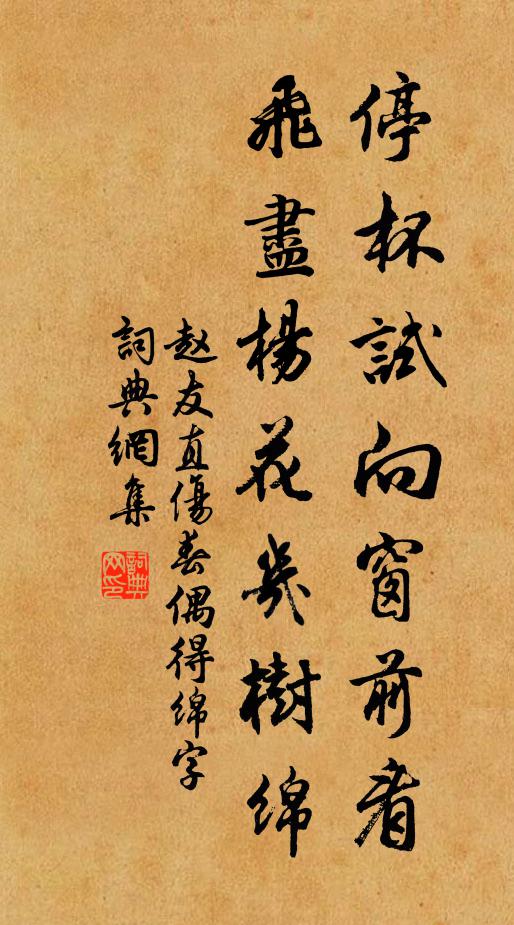 停杯試向窗前看
飛盡楊花幾樹綿
赵友直傷春偶得綿字
詞典網集
詞典网印